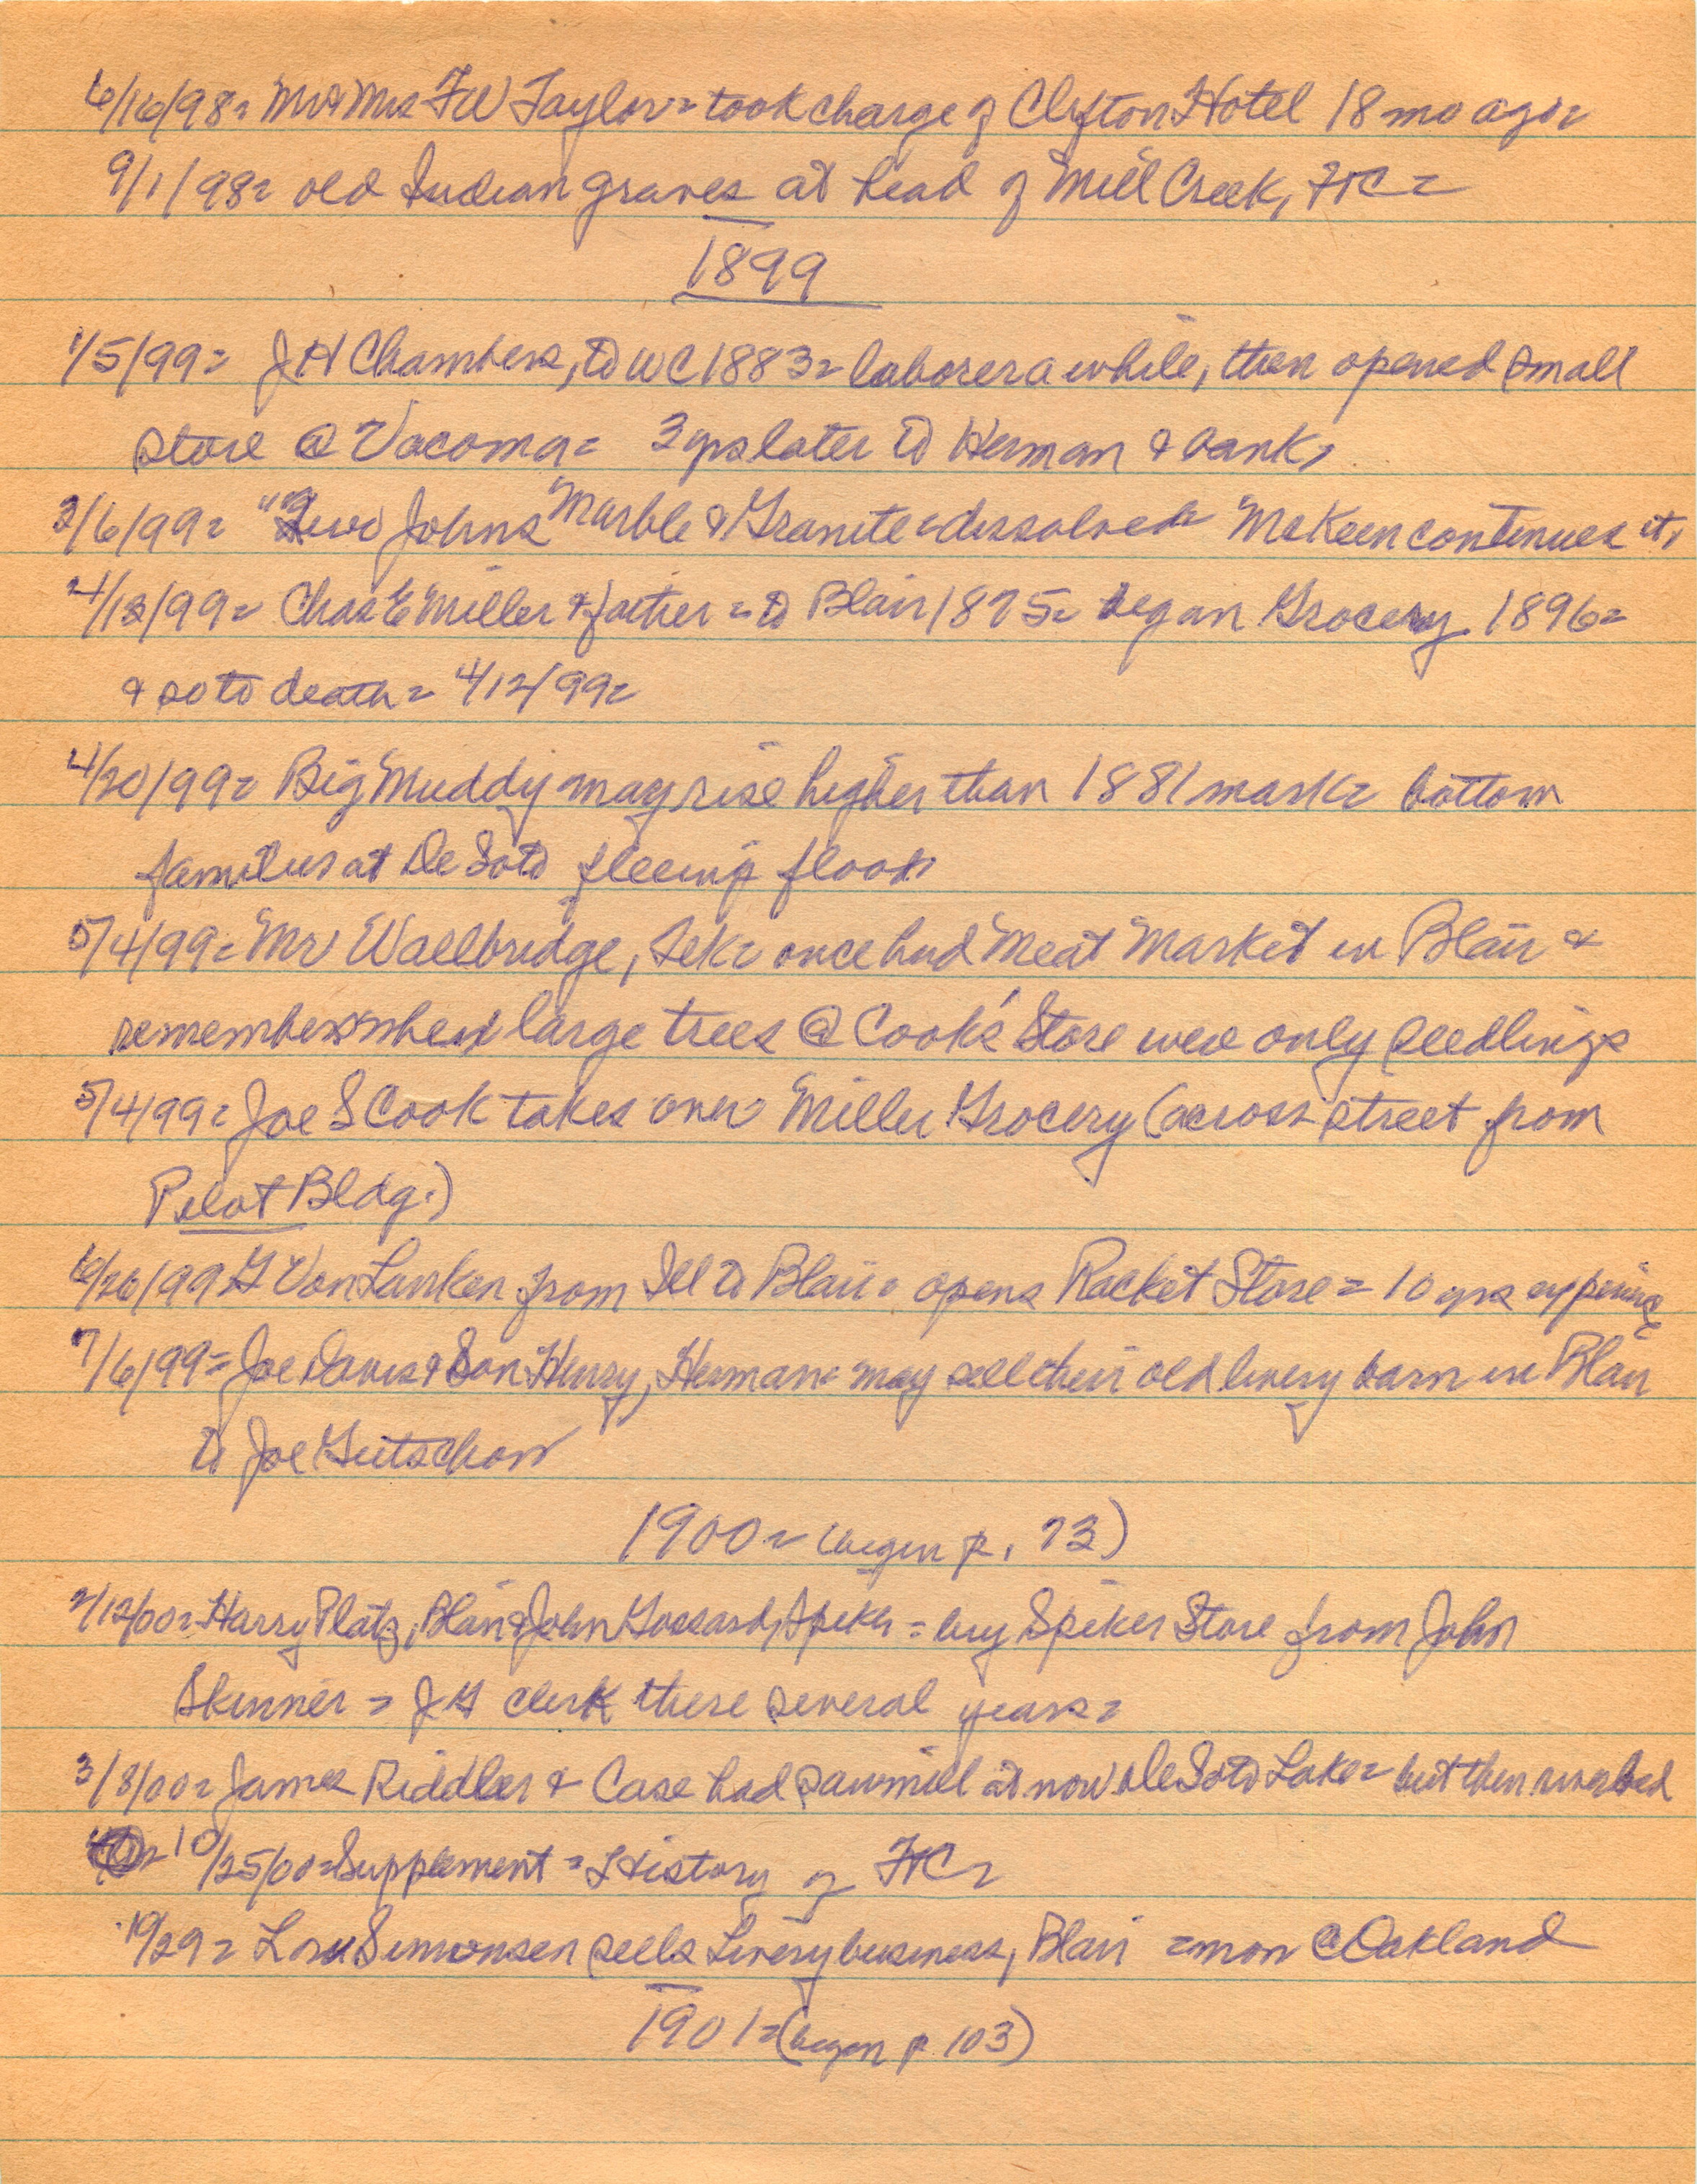 6/16/98= Mr & Mrs FW Taylor= took charge of Clifton Hotel 18 mo ago=
9/1/98= old Indian graves at head of Mill Creek, FTC=
1899
1/5/99= J H Chambers, to WC 1883= laborer a while, then opened small
store @ Vacoma= 3 yrs later to Herman & bank,
3/6/99= "Two Johns" Marble & Granite = dissolved= McKeen continues it,
4/13/99= Chas E Miller & father = to Blair 1875= began Grocery 1896=
& so to death= 4/12/99=
4/20/99= Big Muddy may rise higher than 1881 mark= bottom
families at De Soto fleeing flood,
5/4/99= Mr Wallbridge, Tek= once had Meat Market in Blair &
remembers when large trees @ Cook's Store were only seedlings
5/4/99= Joe S Cook takes over Miller Grocery (across street from
Pilot Bldg.)
6/26/99 G Von Lanken from Ill to Blair= opens Racket Store = 10 yrs experience
7/6/99= Joe Davis & Son Henry, Herman= may sell their old livery barn in Blair
to Joe Gutschow
1900= (began p. 73)
2/12/00= Harry Platz, Blair & John Gossard, Spiker = buy Spiker Store from John
Skinner = JG clerk there several years=
3/8/00= James Riddler & Case had sawmill at now De Soto Lake= but then river bed
10/25/00= Supplement = History of FTC=
10/29= Lou Simonsen sells Livery business, Blair = mov @ Oakland
1901= (began p 103)